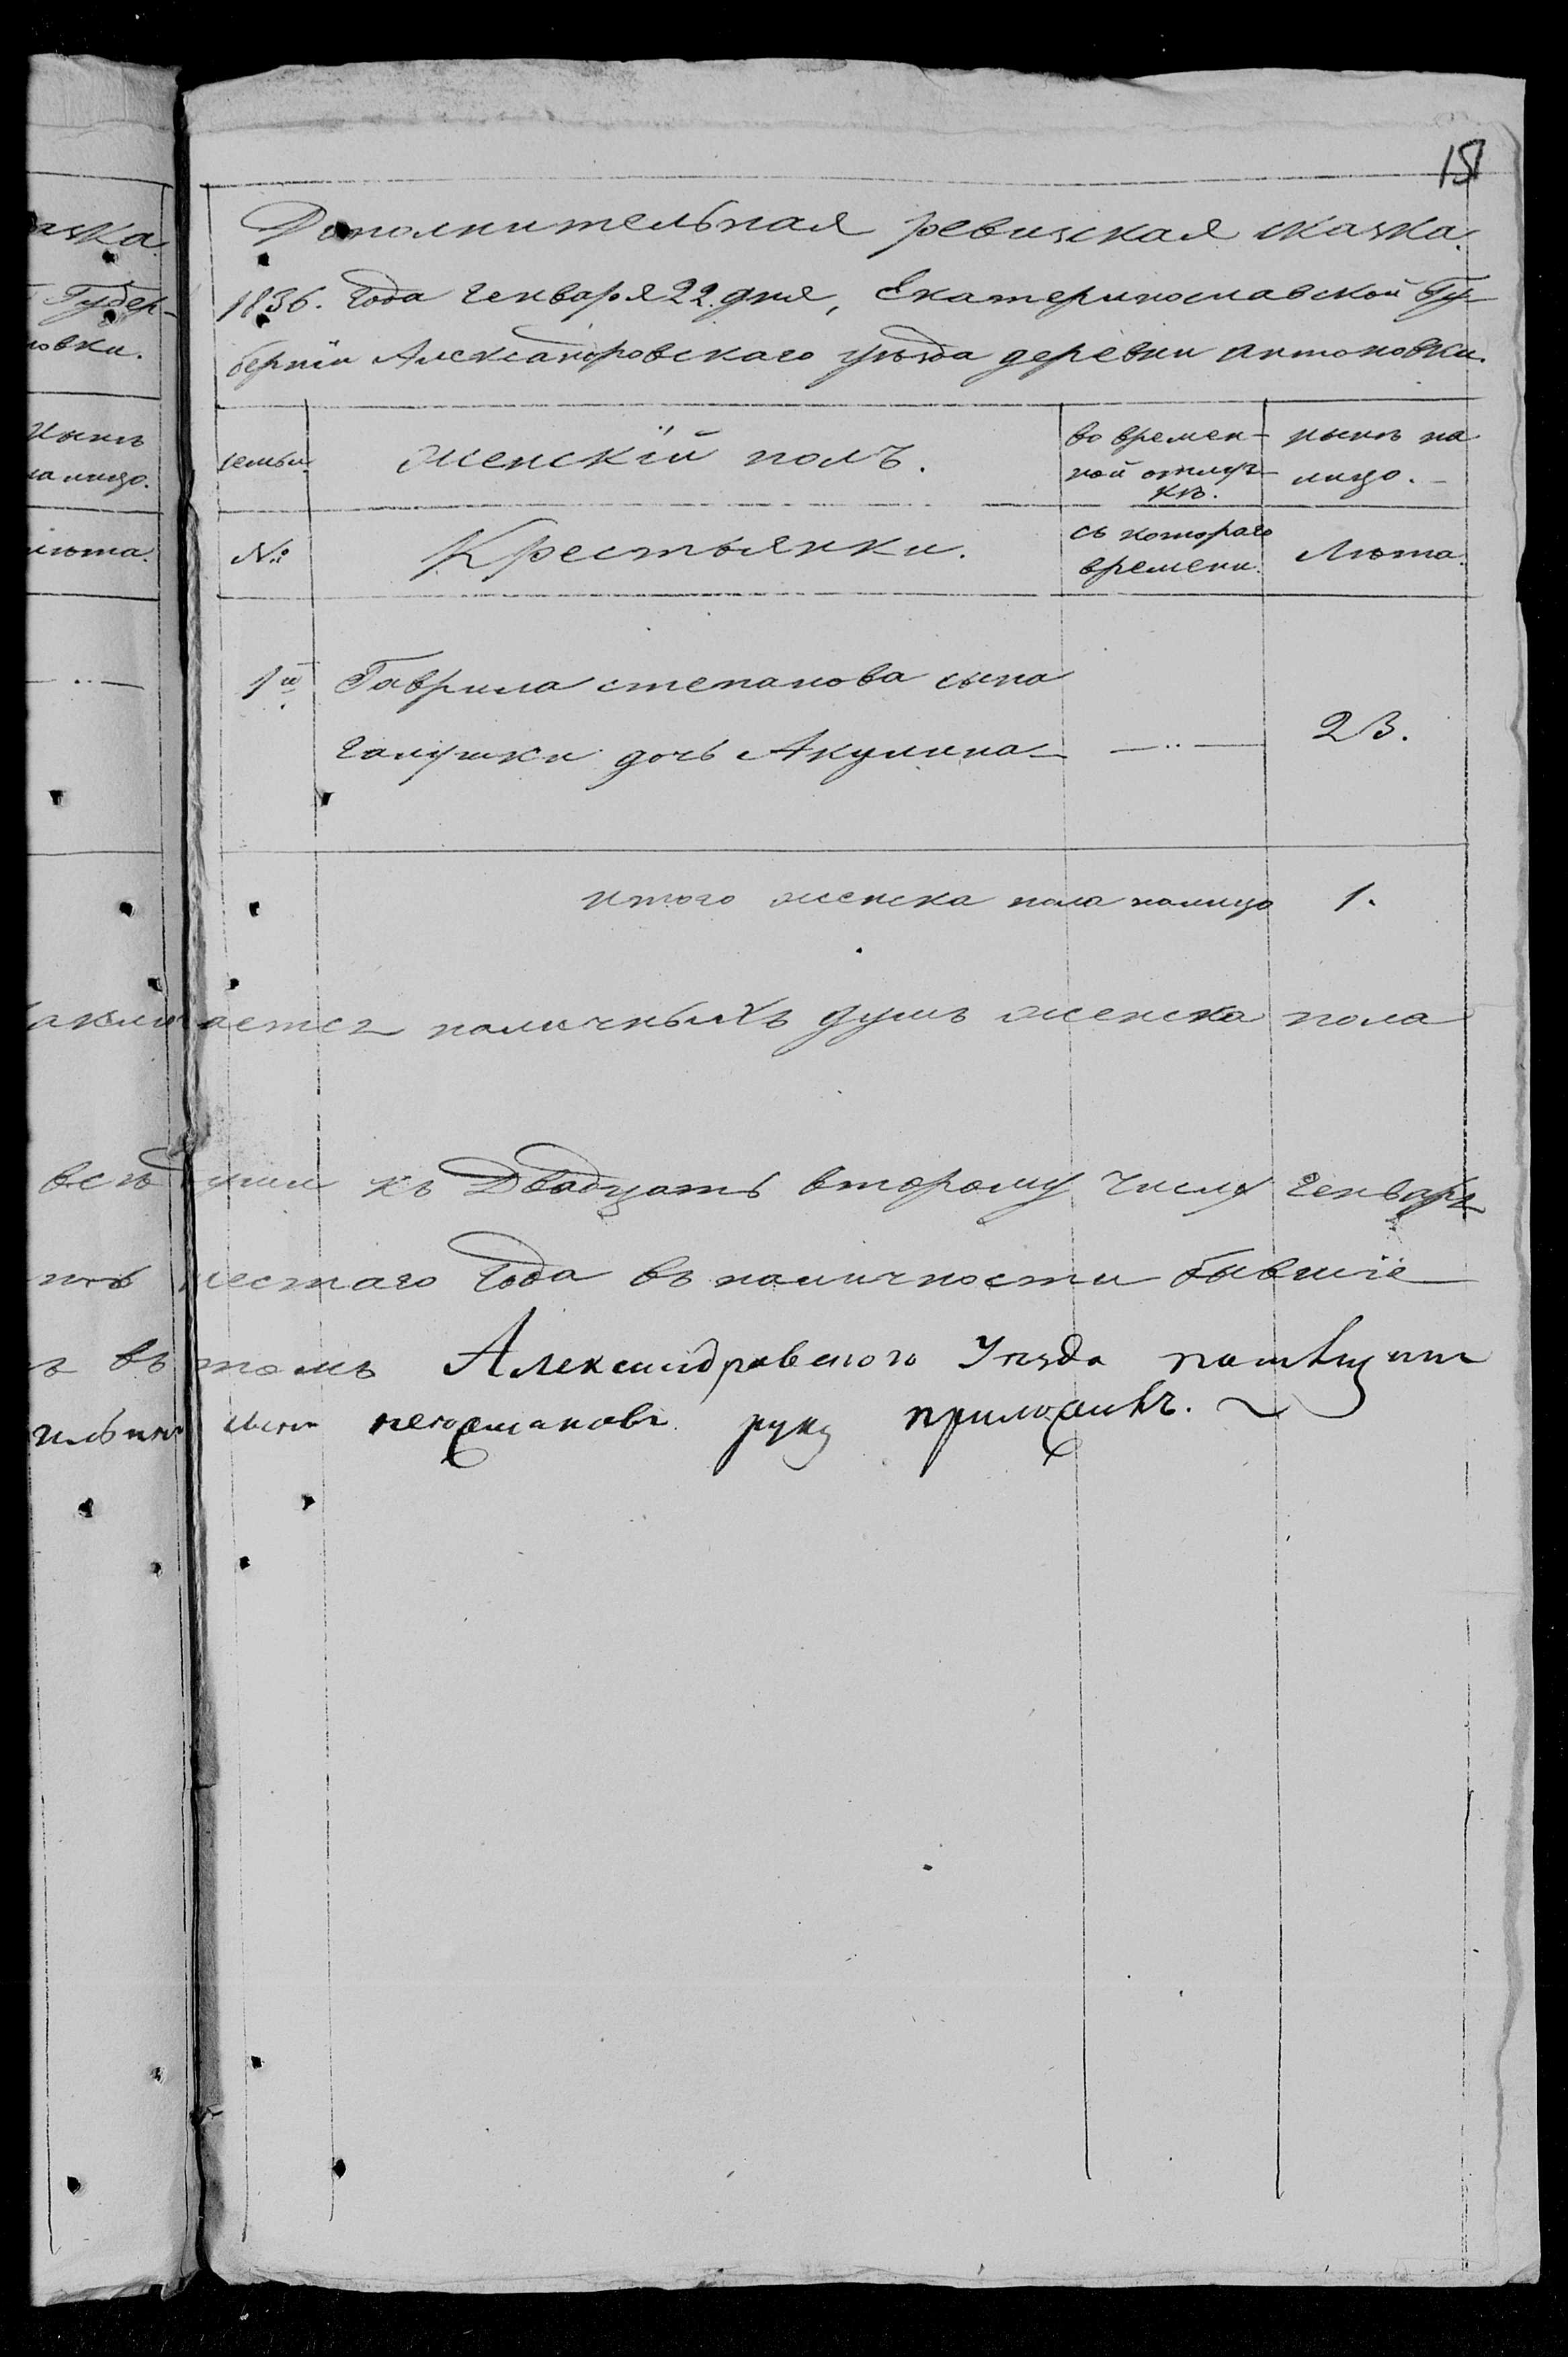 151
Дополнительная ревизская сказка.
1836. Года Генваря 22. дня, Екатеринославской Гу-
берніи Александровскаго уѣзда деревни Антоновки.
семьи
женскій полъ.
во времен-
ной отлуч-
кѣ.
нынѣ на
лицо.
№
Крестьянки.
съ котораго
времени.
Лѣта.
1й
Гаврила степанова сына
галушки дочь Акулина
23.
итого женска пола налицо 1.
ается наличныхъ душъ женска пола
всѣ души къ Двадцать второму числу Генваря
шестаго Года въ наличности бывшіе
въ томъ Александровского Уѣзда
руку приложилъ.
азка.
Губер-
новки.
нынѣ
на лицо.
лѣта.